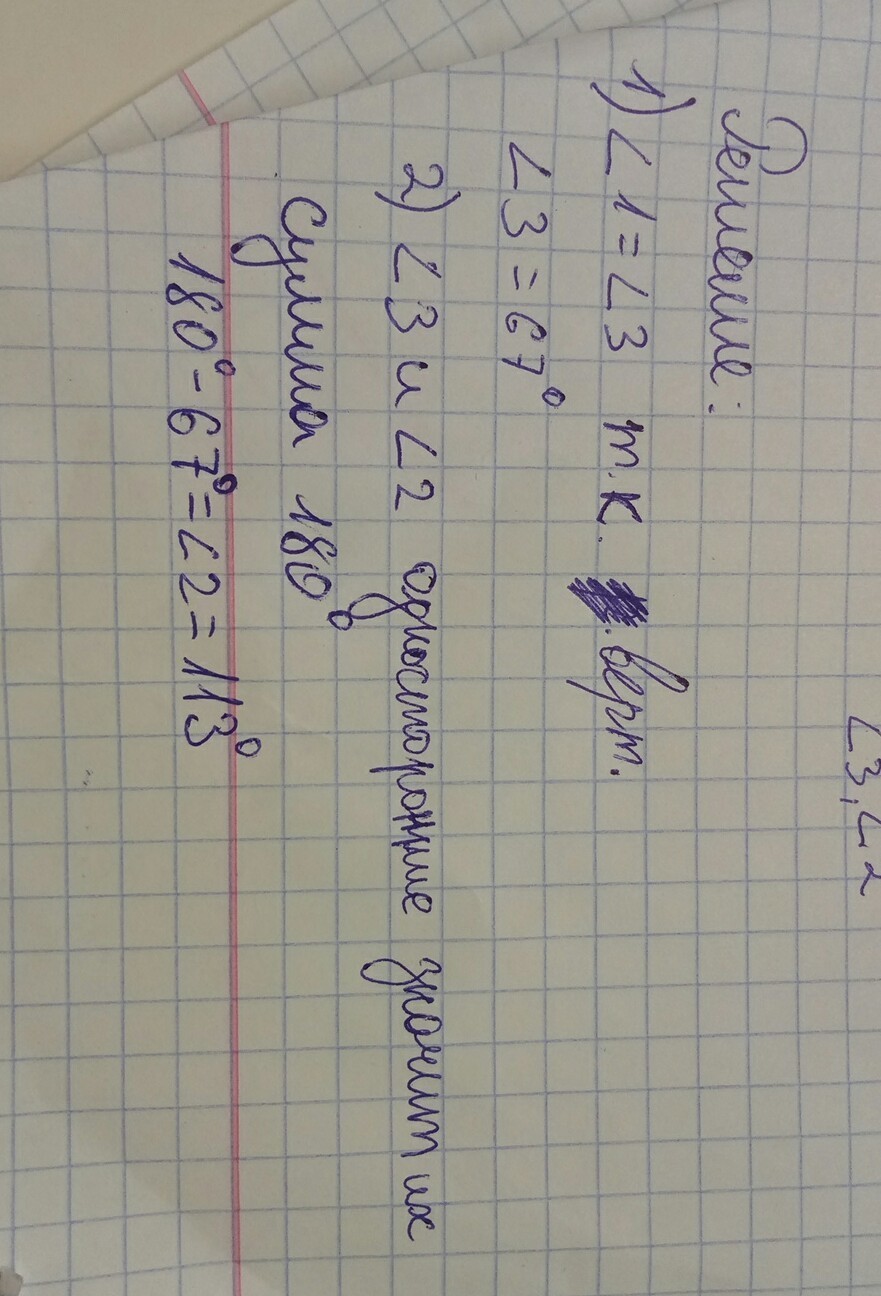 ∠3, ∠2
Решение:
1) ∠1 = ∠3 т.к. верт.
∠3 = 67°
2) ∠3 и ∠2 односторонние значит их
сумма 180°
180° - 67° = ∠2 = 113°